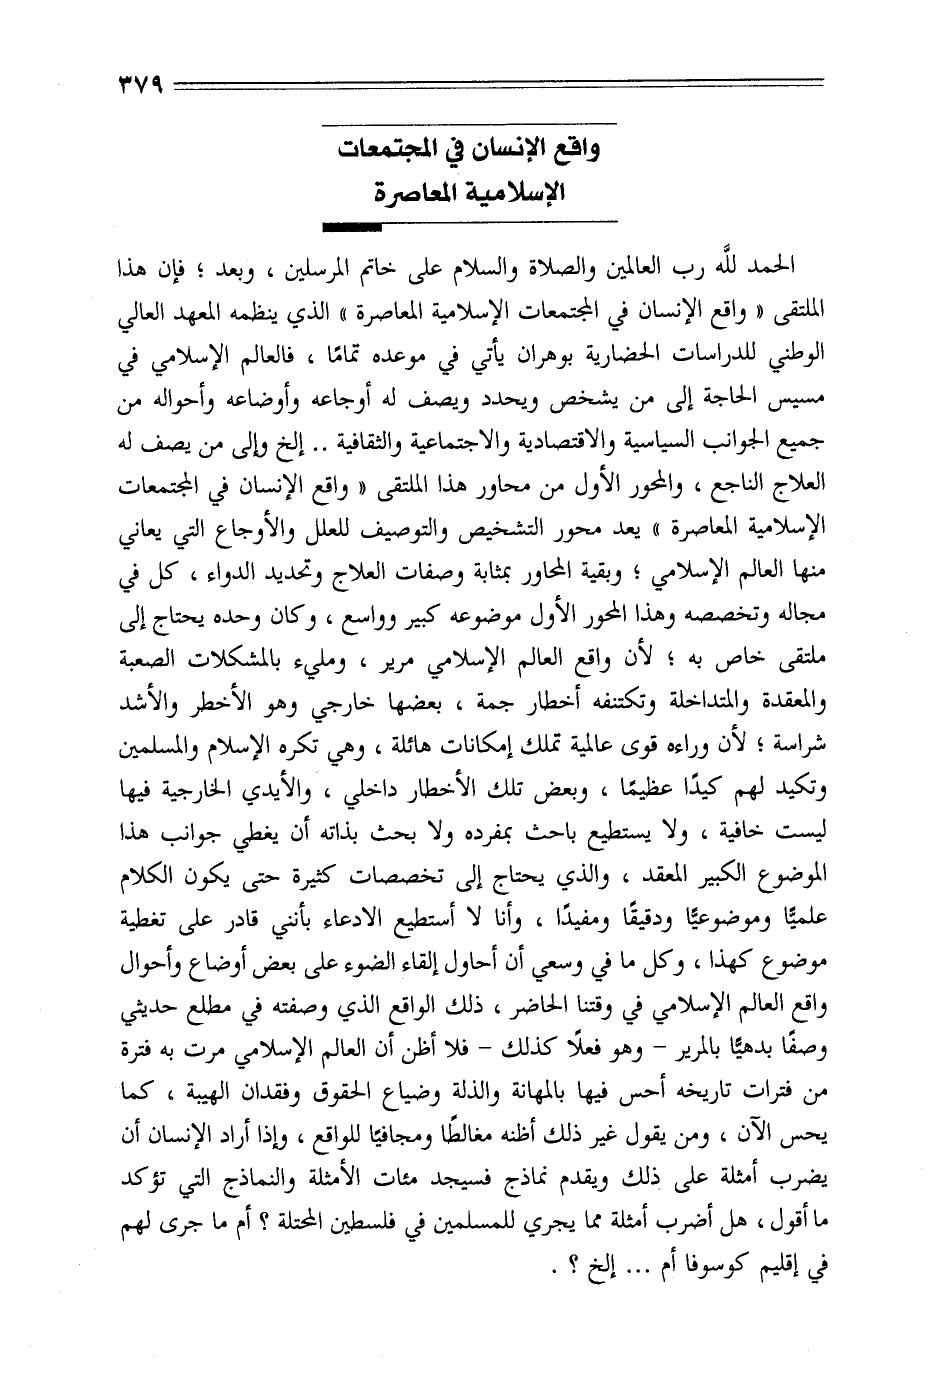 ٣٧٩
واقع الإنسان في المجتمعات
الإسلامية المعاصرة
الحمد للَّه رب العالمين والصلاة والسلام على خاتم المرسلين ، وبعد ؛ فإن هذا
الملتقى « واقع الإنسان في المجتمعات الإسلامية المعاصرة » الذي ينظمه المعهد العالي
الوطني للدراسات الحضارية بوهران يأتي في موعده تمامًا ، فالعالم الإسلامي في
مسيس الحاجة إلى من يشخص ويحدد ويصف له أوجاعه وأوضاعه وأحواله من
جميع الجوانب السياسية والاقتصادية والاجتماعية والثقافية .. إلخ وإلى من يصف له
العلاج الناجع ، والمحور الأول من محاور هذا الملتقى « واقع الإنسان في المجتمعات
الإسلامية المعاصرة » يعد محور التشخيص والتوصيف للعلل والأوجاع التي يعاني
منها العالم الإسلامي ؛ وبقية المحاور بمثابة وصفات العلاج وتحديد الدواء ، كل في
مجاله وتخصصه وهذا المحور الأول موضوعه كبير وواسع ، وكان وحده يحتاج إلى
ملتقى خاص به ؛ لأن واقع العالم الإسلامي مرير ، ومليء بالمشكلات الصعبة
والمعقدة والمتداخلة وتكتنفه أخطار جمة ، بعضها خارجي وهو الأخطر والأشد
شراسة ؛ لأن وراءه قوى عالمية تملك إمكانات هائلة ، وهي تكره الإسلام والمسلمين
وتكيد لهم كيدًا عظيمًا ، وبعض تلك الأخطار داخلي ، والأيدي الخارجية فيها
ليست خافية ، ولا يستطيع باحث بمفرده ولا بحث بذاته أن يغطي جوانب هذا
الموضوع الكبير المعقد ، والذي يحتاج إلى تخصصات كثيرة حتى يكون الكلام
علميًّا وموضوعيًّا ودقيقًا ومفيدًا ، وأنا لا أستطيع الادعاء بأنني قادر على تغطية
موضوع كهذا ، وكل ما في وسعي أن أحاول إلقاء الضوء على بعض أوضاع وأحوال
واقع العالم الإسلامي في وقتنا الحاضر ، ذلك الواقع الذي وصفته في مطلع حديثي
وصفًا بدهيًّا بالمرير – وهو فعلًا كذلك – فلا أظن أن العالم الإسلامي مرت به فترة
من فترات تاريخه أحس فيها بالمهانة والذلة وضياع الحقوق وفقدان الهيبة ، كما
يحس الآن ، ومن يقول غير ذلك أظنه مغالطًا ومجافيًا للواقع ، وإذا أراد الإنسان أن
يضرب أمثلة على ذلك ويقدم نماذج فسيجد مئات الأمثلة والنماذج التي تؤكد
ما أقول ، هل أضرب أمثلة مما يجري للمسلمين في فلسطين المحتلة ؟ أم ما جرى لهم
في إقليم كوسوفا أم ... إلخ ؟ .